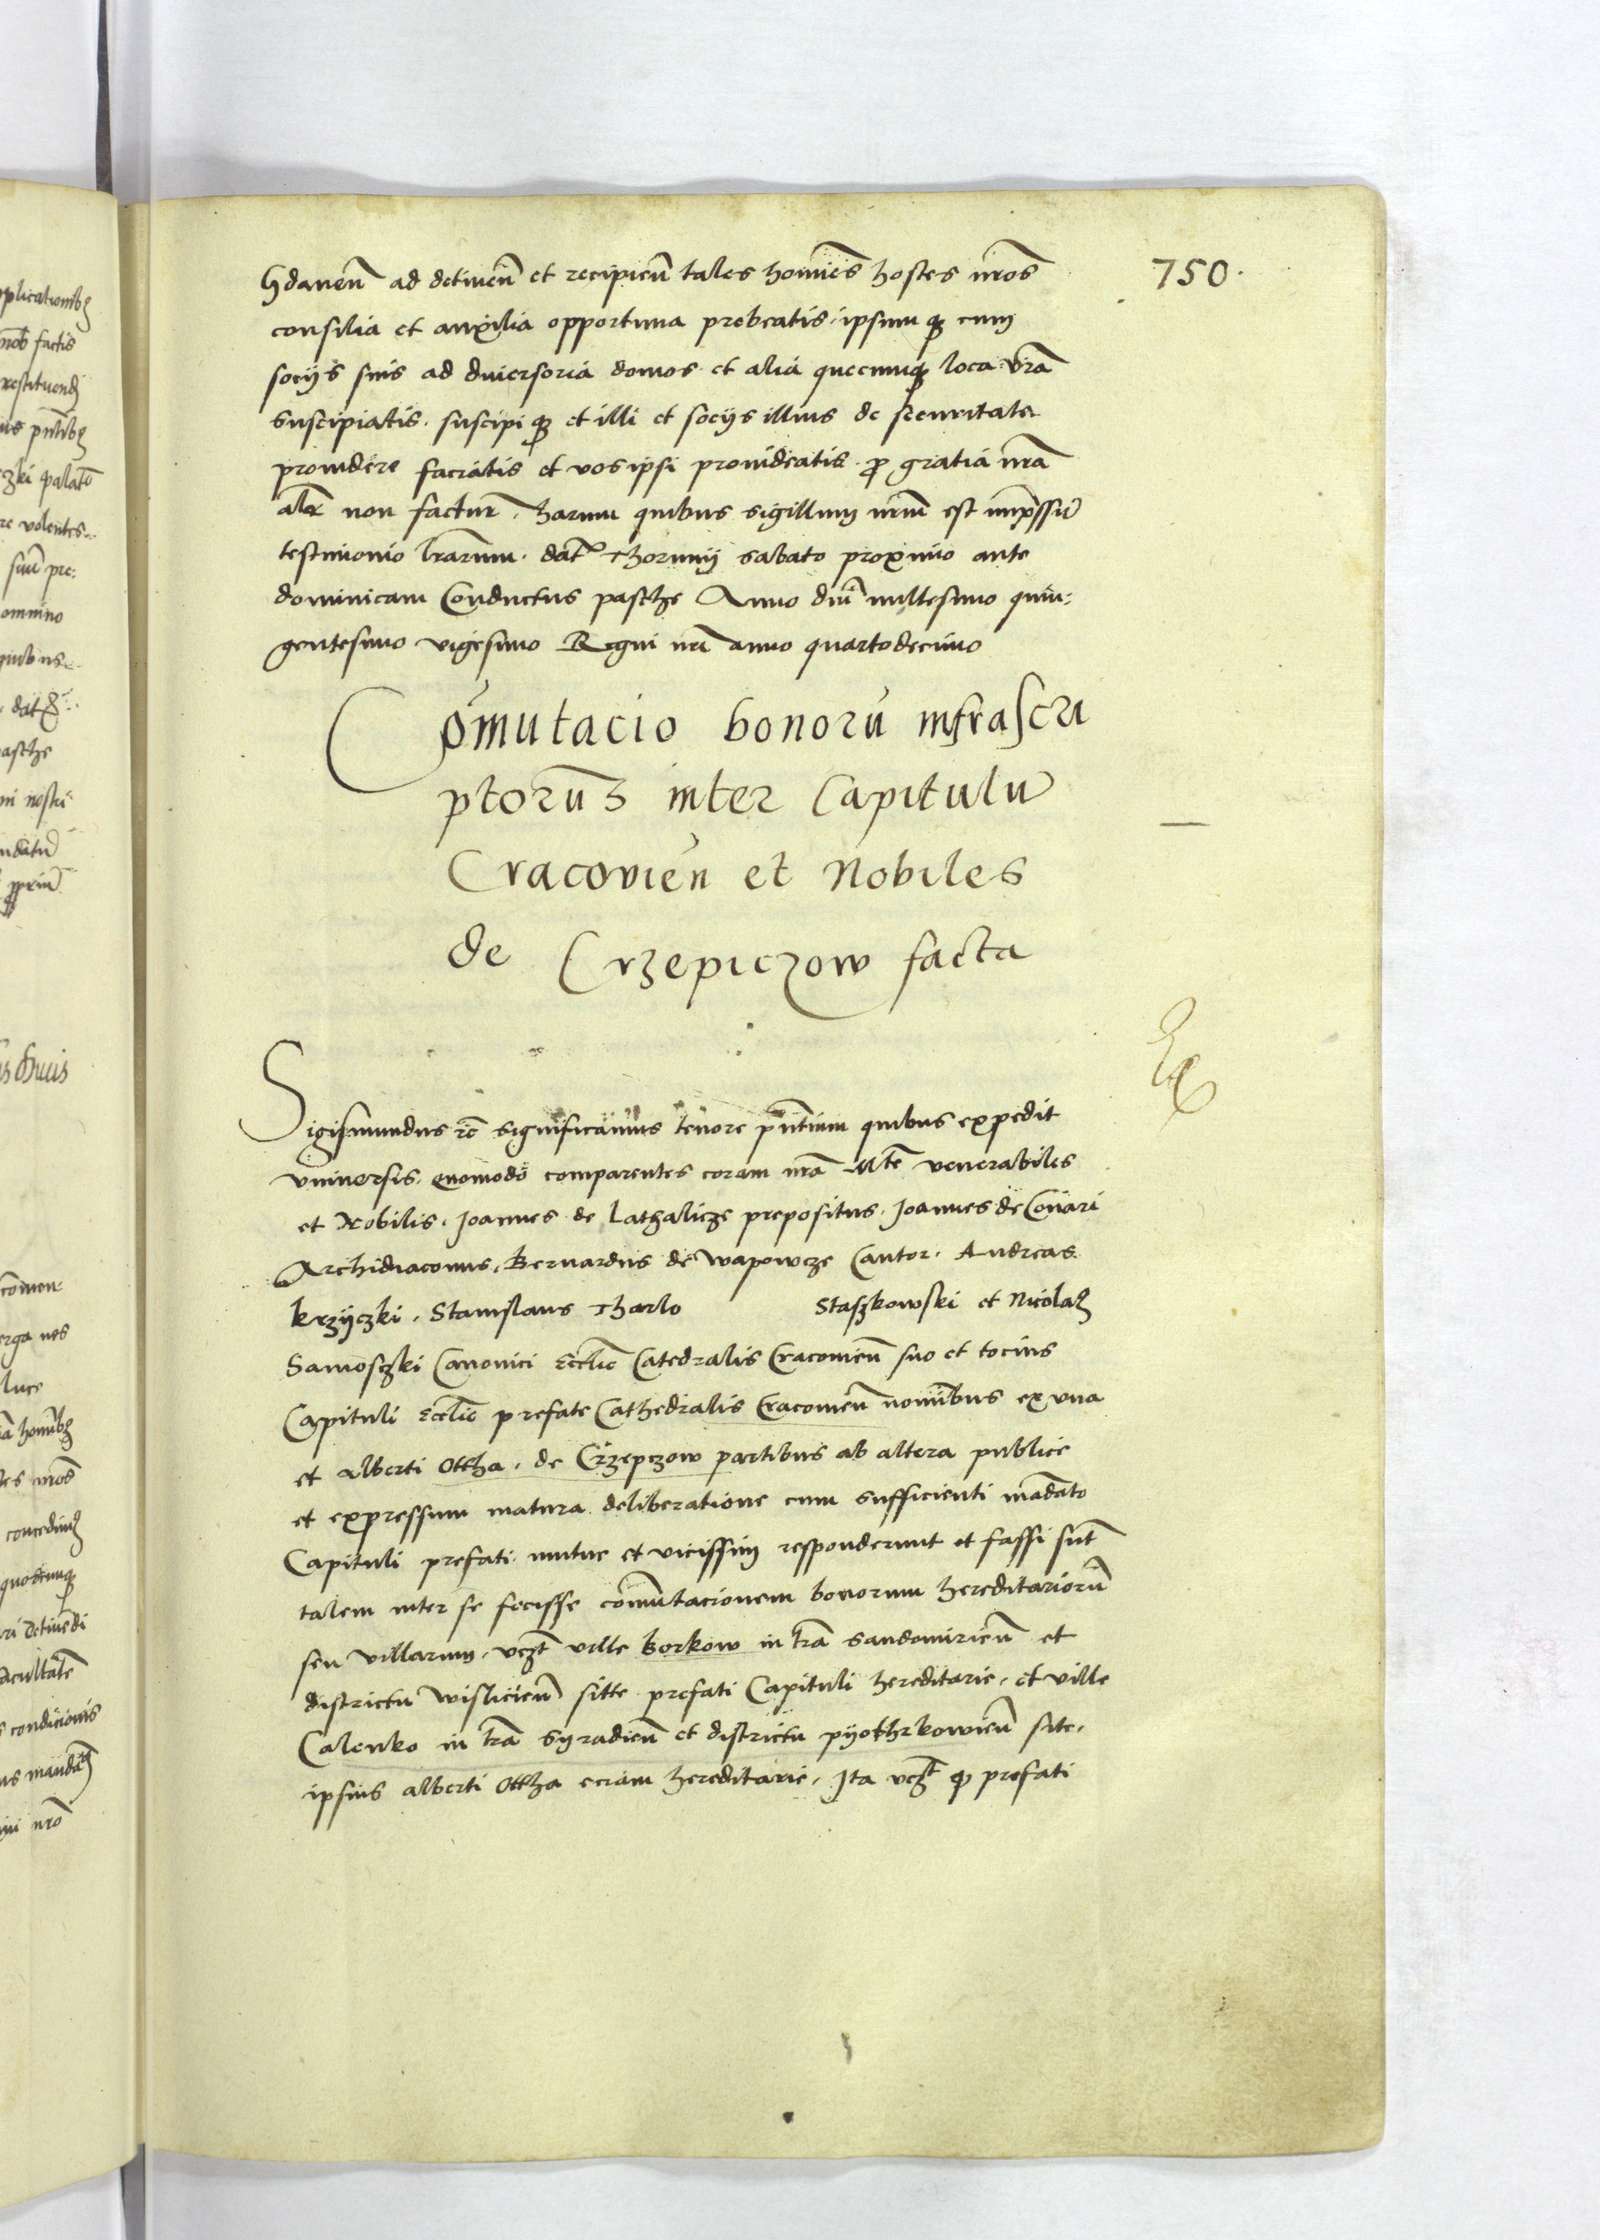 750.
Gdanen̄ ad detinen̄ et recipien̄ tales homīes hostes nr̄os
consilia et auxilia opportuna prebeatis. ipsumqꝫ cum
socijs suis ad diversoria domos et alia quecumqꝫ loca vr̄a
suscipiatis. suscipiqꝫ et illi et socijs illius de securitate
providere faciatis et vos ipsi provideatis. pro gratia nr̄a
alr̄ non factur̄. harum quibus sigillum nr̄um est imp̄ssū
testimonio lr̄arum. dat̄ Thorunij sabato proximo ante
dominicam Conductus pasche Anno dnī millesimo quin:
gentesimo vigesimo Regni nr̄i anno quartodecimo
Cōmutacio bonorū infrascri
ptorūꝫ inter Capitulū
Cracovien̄ et Nobiles
de Crzepiczow facta
Sigismundus rc̄ significamus tenore pn̄tium quibus expedit
vniversis. quomodo comparentes coram nr̄a Mte͞ venerabiles
et Nobilis. Joannes de Lathalicze prepositus. Joannes de Conari
Archidiaconus. Bernardus de Wapowcze Cantor. Andreas
Krzyczki. Stanislaus Tharlo Staszkowski et Nicolaꝰ
Samosczki Canonici Eccl̄ie Catedralis Cracovien̄ suo et tocius
Capituli Eccl̄ie prefate Cathedralis Cracovien̄ nomībus ex vna
et Alberti Ottha. de Crzepczow partibus ab altera publice
et expressum matura deliberatione cum sufficienti man̄dato
Capituli prefati. mutue et vicissim responderunt et fassi sūt
talem inter se fecisse com̄utacionem bonorum hereditariorū
seu villarum. vczt̄ ville Borkow in tr̄a Sandomirien̄ et
districtu Wislicien̄ sitte prefati Capituli hereditarie. et ville
Calenko in tr̄a Syradien̄ et districtu pyothrkowien̄ site.
ipsius Alberti Ottha eciam hereditarie. Ita vczt̄ qꝫ prefati